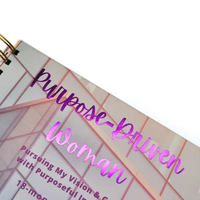 Purpose-Driven
Woman
Pursuing My Vision &
with Purposeful
18-